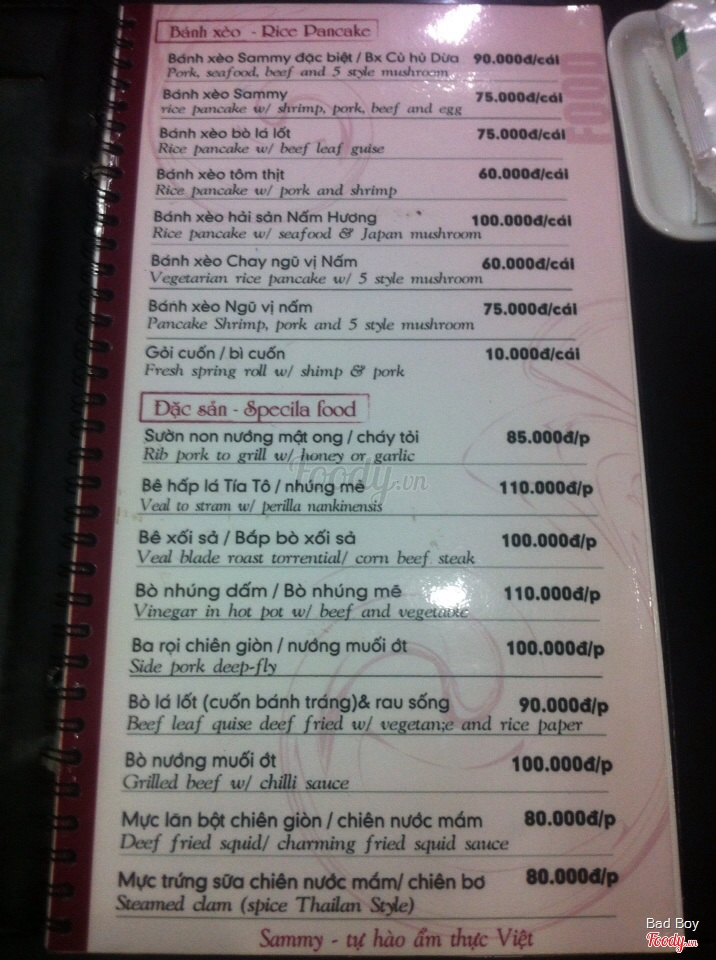 Bánh xèo - Rice Pancake
FOOD
Bánh xèo Sammy đặc biệt / Bx Củ hủ Dừa 90.000đ/cái
Pork, seafood, beef and 5 style mushroom
Bánh xèo Sammy 75.000đ/cái
rice pancake w/ shrimp, pork, beef and egg
Bánh xèo bò lá lốt 75.000đ/cái
Rice pancake w/ beef leaf guise
Bánh xèo tôm thịt 60.000đ/cái
Rice pancake w/ pork and shrimp
Bánh xèo hải sản Nấm Hương 100.000đ/cái
Rice pancake w/ seafood & Japan mushroom
Bánh xèo Chay ngũ vị Nấm 60.000đ/cái
Vegetarian rice pancake w/ 5 style mushroom
Bánh xèo Ngũ vị nấm 75.000đ/cái
Pancake Shrimp, pork and 5 style mushroom
Gỏi cuốn / bì cuốn 10.000đ/cái
Fresh spring roll w/ shimp & pork
Đặc sản - Specila food
Sườn non nướng mật ong / cháy tỏi 85.000đ/p
Rib pork to grill w/ honey or garlic
Foody.vn
Bê hấp lá Tía Tô / nhúng mẻ 110.000đ/p
Veal to stram w/ perilla nankinensis
Bê xối sả / Bắp bò xối sả 100.000đ/p
Veal blade roast torrential/ corn beef steak
Bò nhúng dấm / Bò nhúng mẻ 110.000đ/p
Vinegar in hot pot w/ beef and vegetable
Ba rọi chiên giòn / nướng muối ớt 100.000đ/p
Side pork deep-fly
Bò lá lốt (cuốn bánh tráng)& rau sống 90.000đ/p
Beef leaf quise deef fried w/ vegetan;e and rice paper
Bò nướng muối ớt 100.000đ/p
Grilled beef w/ chilli sauce
Mực lăn bột chiên giòn / chiên nước mắm 80.000đ/p
Deef fried squid/ charming fried squid sauce
Mực trứng sữa chiên nước mắm/ chiên bơ 80.000đ/p
Steamed clam (spice Thailan Style)
Sammy - tự hào ẩm thực Việt
Bad Boy
Foody.vn